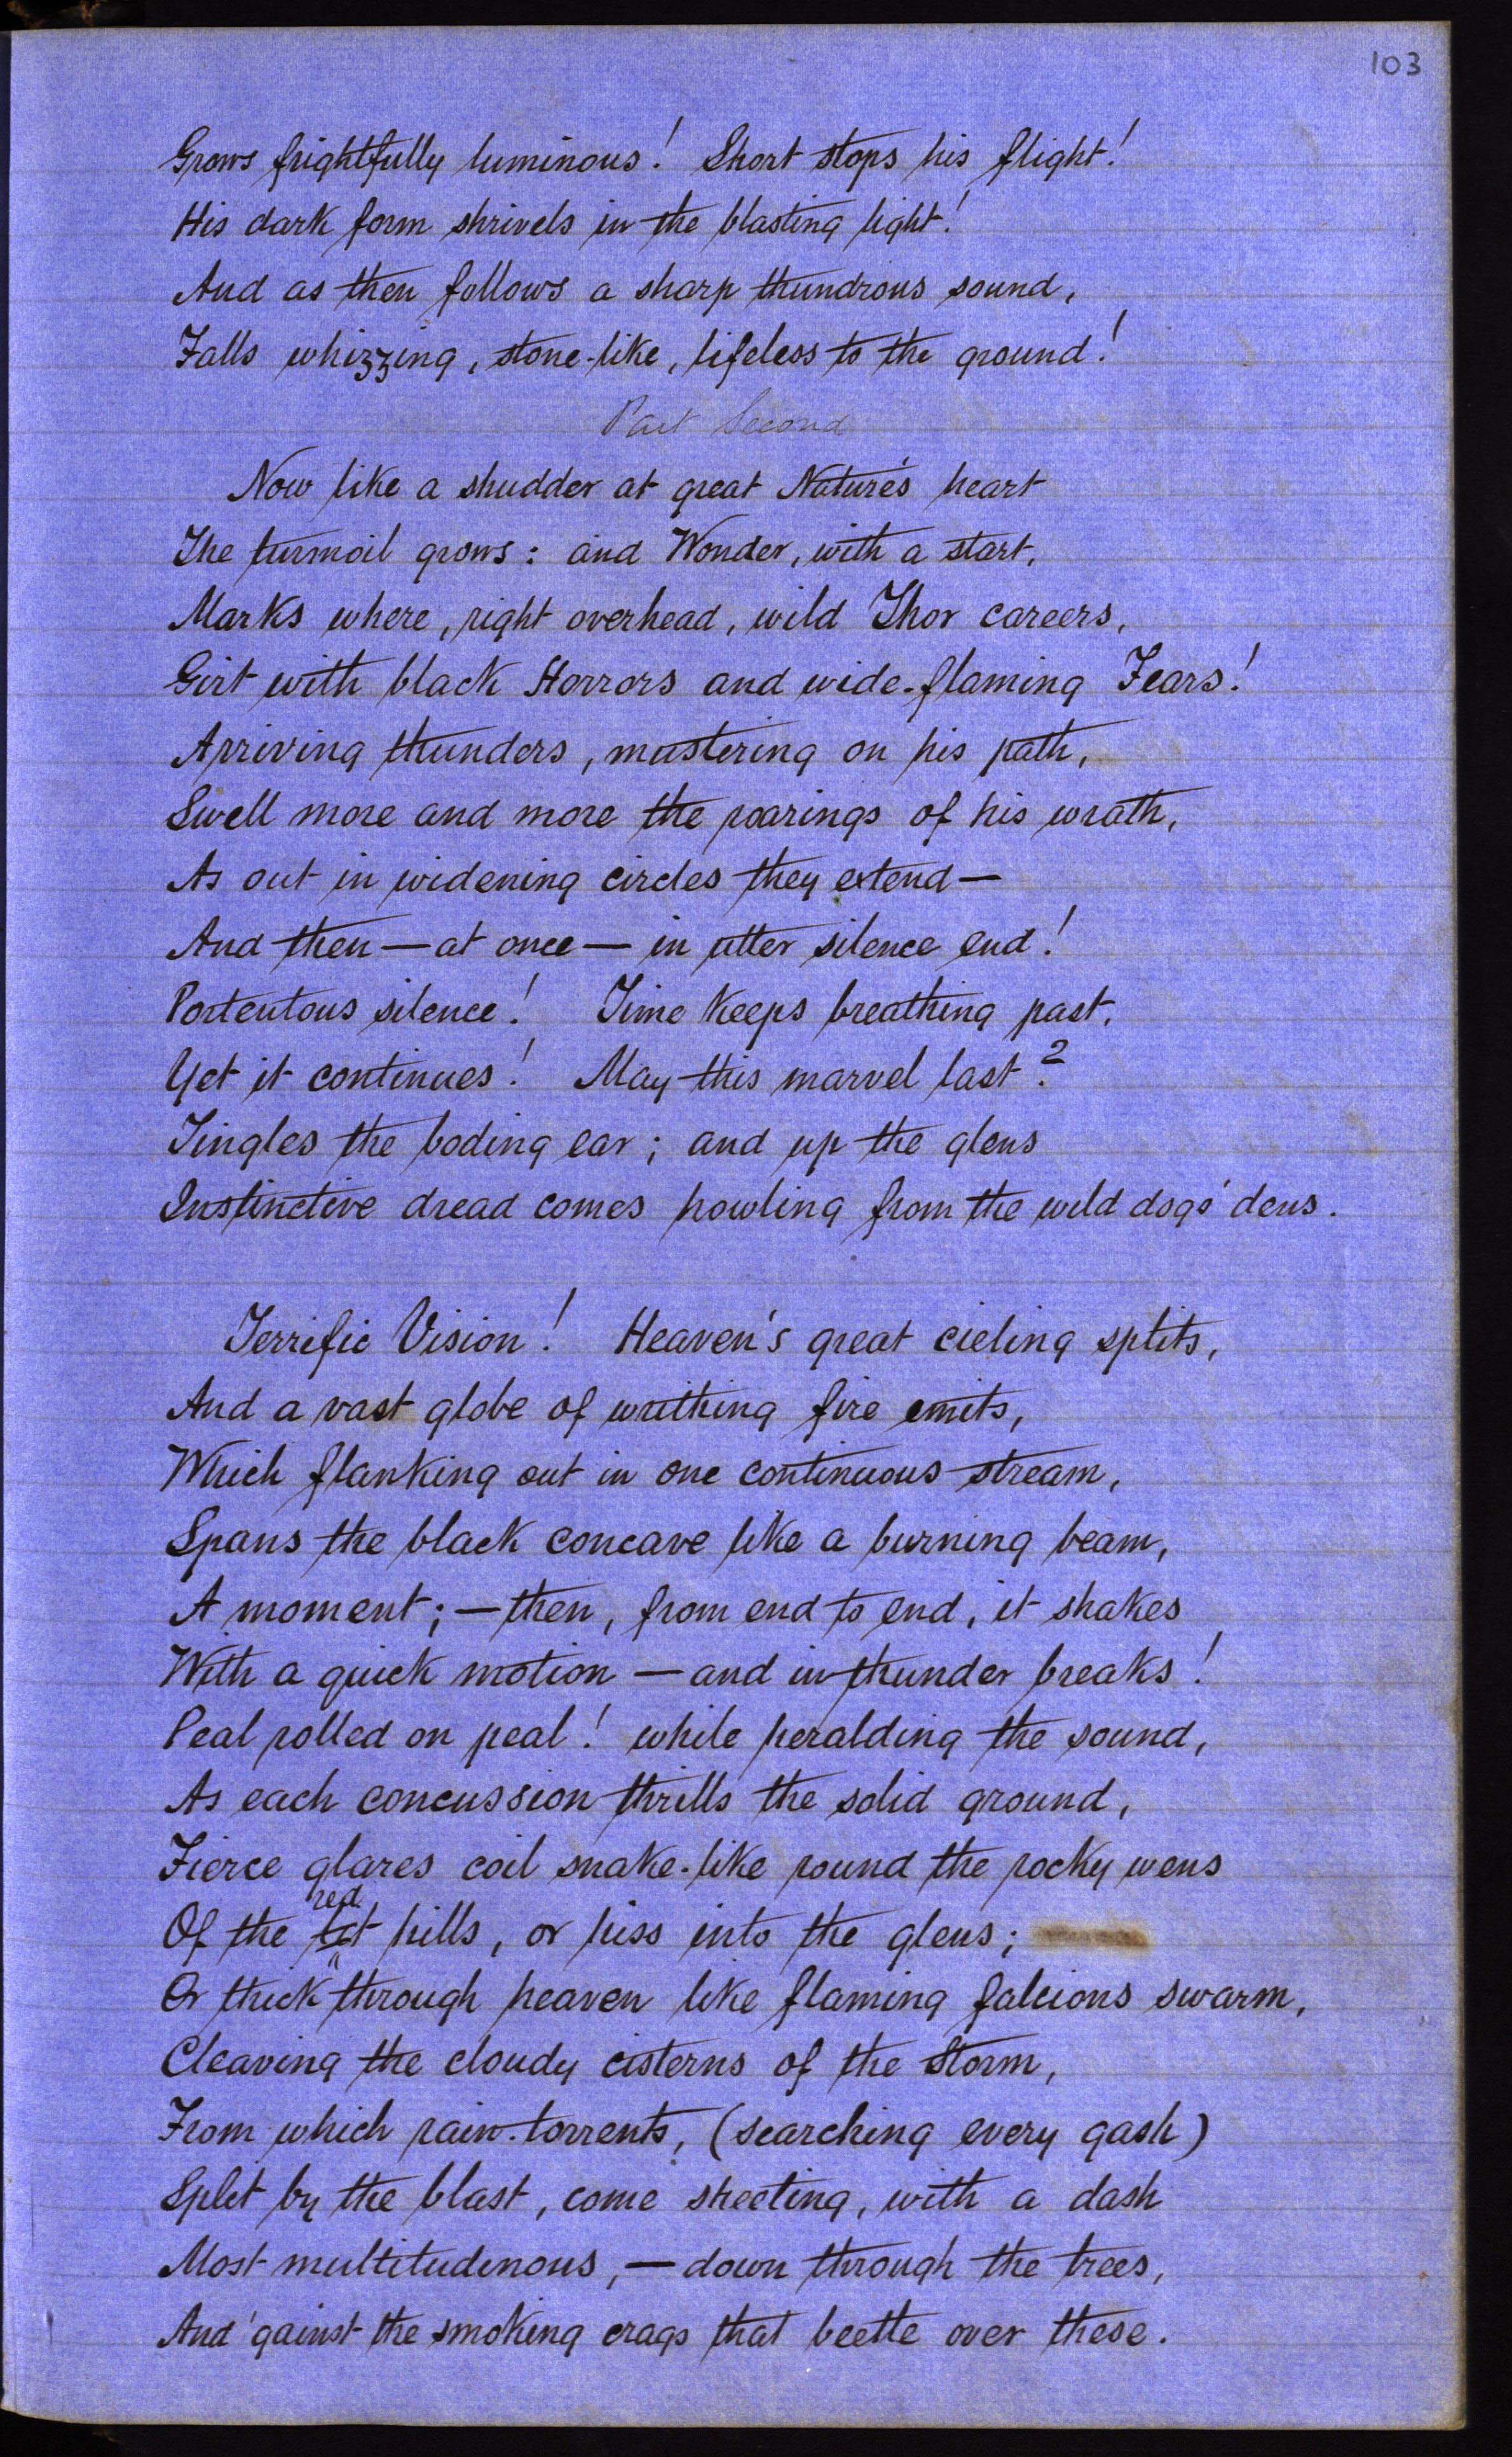 103
Grows frightfully luminous! Short stops his flight!
His dark form shrivels in the blasting light!
And as then follows a sharp thundrous sound,
Falls whizzing, stone-like, lifeless to the ground!
Part Second
Now like a shudder at great Nature's heart
The turmoil grows: and Wonder, with a start,
Marks where, right overhead, wild Thor careers,
Girt with black Horrors and wide-flaming Fears!
Arriving thunders, mustering on his path,
Swell more and more the roarings of his wrath,
As out in widening circles they extend—
And then—at once—in utter silence end!
Portentous silence! Time keeps breathing past,
Yet it continues! May this marvel last?
Tingles the boding ear; and up the glens
Instinctive dread comes howling from the wild dogs' dens.
Terrific Vision! Heaven's great cieling splits,
And a vast globe of writhing fire emits,
Which flanking out in one continuous stream,
Spans the black concave like a burning beam,
A moment;—then, from end to end, it shakes
With a quick motion—and in thunder breaks!
Peal rolled on peal! while heralding the sound,
As each concussion thrills the solid ground,
Fierce glares coil snake-like round the rocky wens
red
Of the hills, or hiss into the glens;
Or thick through heaven like flaming falcions swarm,
Cleaving the cloudy cisterns of the Storm,
From which rain-torrents, (searching every gash)
Split by the blast, come sheeting, with a dash
Most multitudinous,—down through the trees,
And 'gainst the smoking crags that beetle over these.